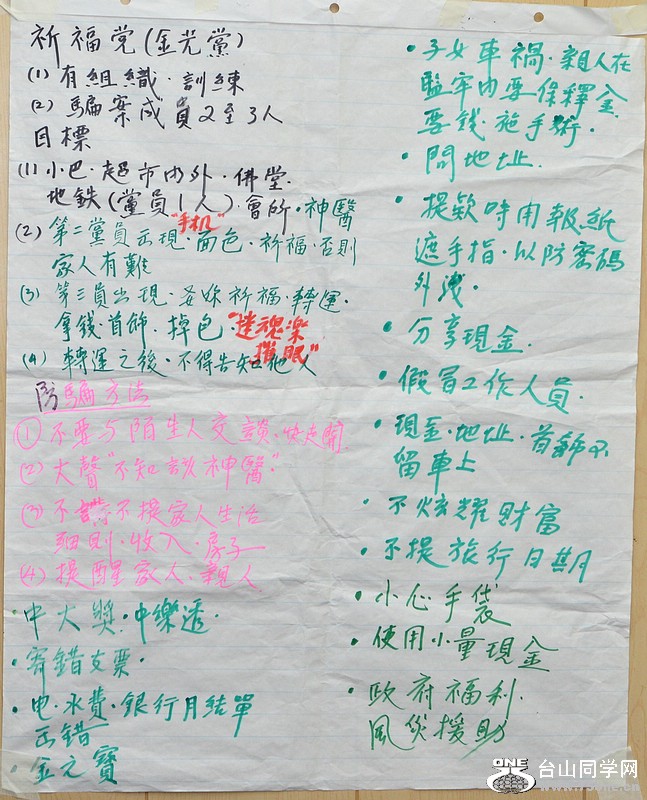 祈福党(金光黨)
(1) 有組織·訓練
(2) 騙案成員2至3人
目標
(1) 小巴·超市内外·佛堂·
地鉄(黨員1人)·會所·神醫
"手机"
(2) 第二黨員出現·面色·祈福·否則
家人有難
(3) 第三員出現·妥妳祈福·轉運·
拿錢·首飾·掉包·"迷魂樂
(4) 轉運之後·不得告知他人
催眠"
防騙方法
① 不要与陌生人交談·快走開
(2) 大聲"不知該神醫"
(3) 不談不提家人生活
細則·收入·房子
(4) 提醒家人·親人
·中大獎·中樂透·
·寄錯支票·
·电·水費·銀行月結單
出錯
·金元寶
·子女車禍·親人在
監牢内要保釋金
要錢·施手術·
·問地址·
·提欵時用報紙
遮手指·以防密碼
外洩·
·分享現金·
·假冒工作人員·
·現金·地址·首飾不
留車上
·不炫耀財富
·不提旅行日期
·小心手袋
·使用小量現金
·政府福利·
風災援助
ONE 台山同学网